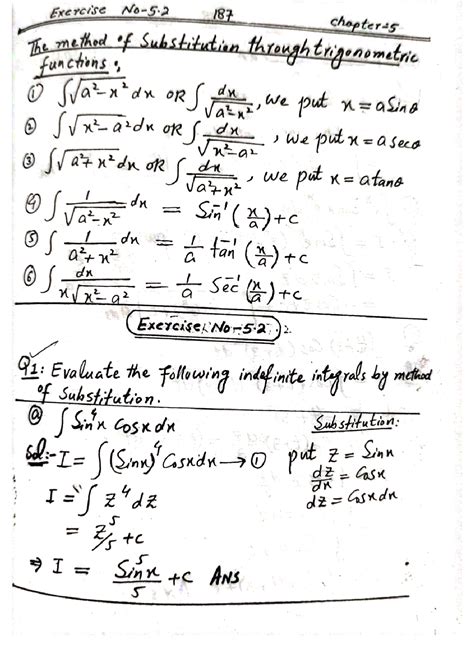 Exercise No-5.2 187 chapter-5
The method of Substitution through trigonometric
functions:
① ∫√(a²-x²) dx OR ∫ dx/√(a²-x²), we put x = a Sinθ
② ∫√(x²-a²) dx OR ∫ dx/√(x²-a²), we put x = a secθ
③ ∫√(a²+x²) dx OR ∫ dx/√(a²+x²), we put x = a tanθ
④ ∫ 1/√(a²-x²) dx = Sin⁻¹(x/a)+c
⑤ ∫ 1/(a²+x²) dx = 1/a tan⁻¹(x/a)+c
⑥ ∫ dx/(x√(x²-a²)) = 1/a Sec⁻¹(x/a)+c
Exercise No-5.2
Q1: Evaluate the following indefinite integrals by method
of Substitution.
ⓐ ∫ Sin⁴x Cosx dx
Sol:- I = ∫(Sinx)⁴ Cosxdx → ①
I = ∫ z⁴ dz
= z⁵/5 +c
⇒ I = Sin⁵x/5 +c Ans
Substitution:
put z = Sinx
dz/dx = Cosx
dz = Cosx dx